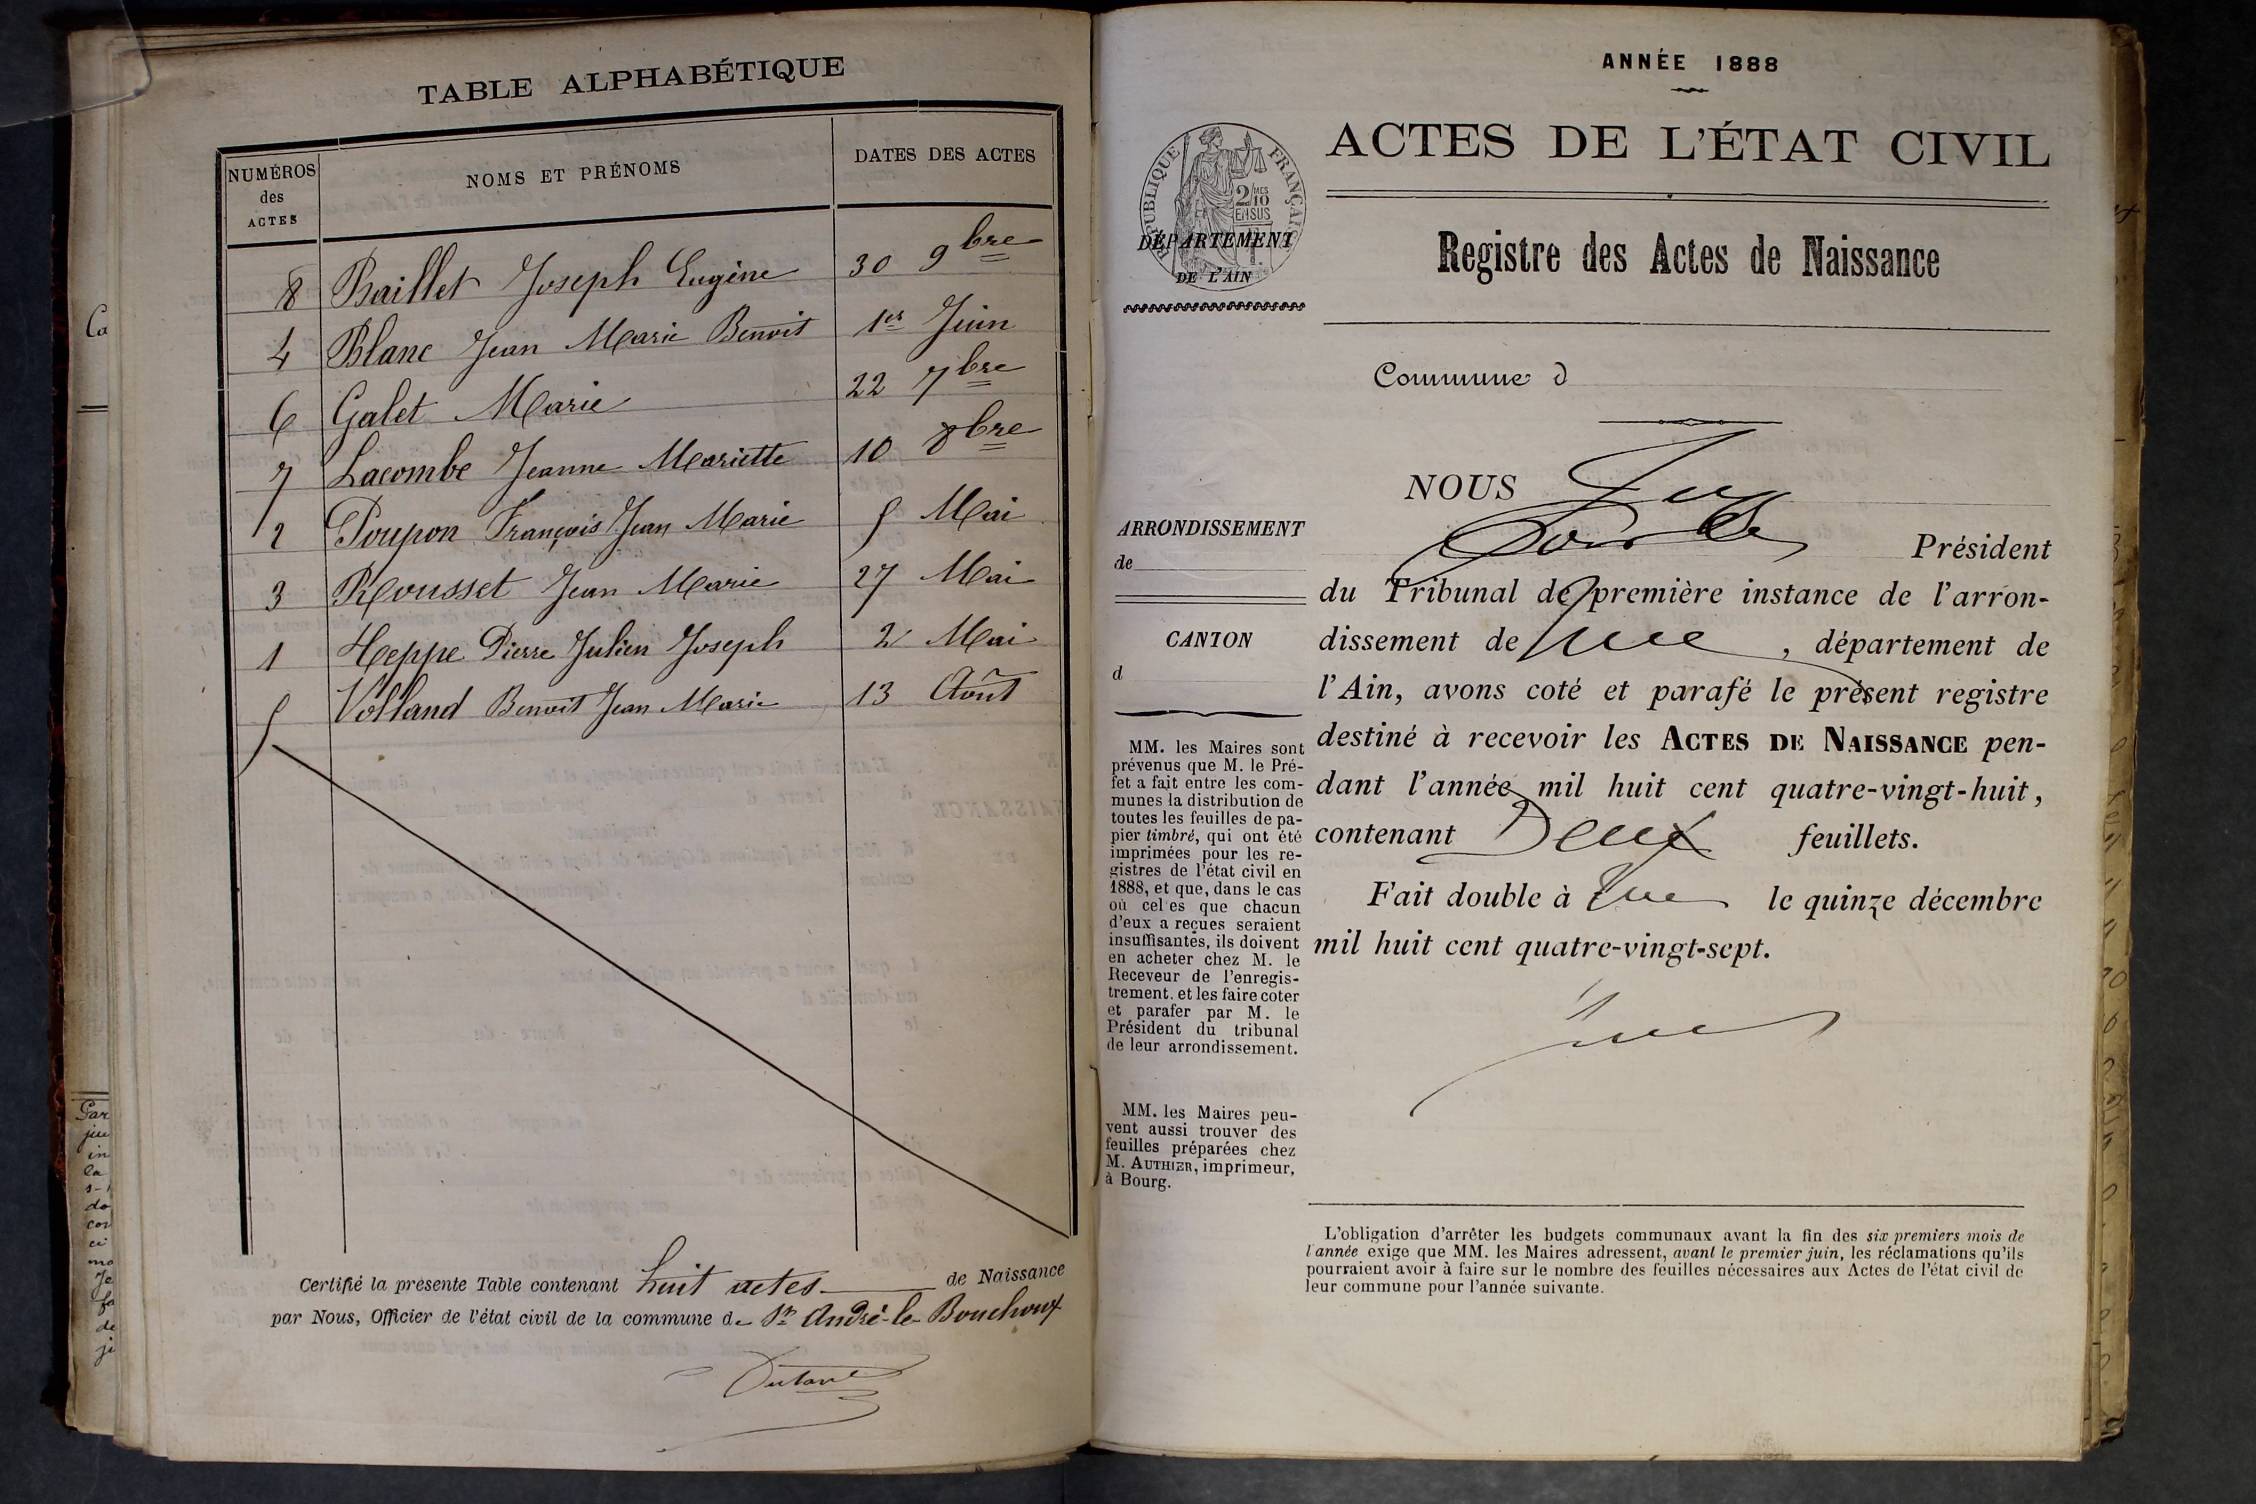 TABLE ALPHABÉTIQUE
NUMÉROS des ACTES | NOMS ET PRÉNOMS | DATES DES ACTES
8 Baillet Joseph Eugène 30 9bre
4 Blanc Jean Marie Benoit 1er Juin
6 Galet Marie 22 7bre
7 Lacombe Jeanne Mariette 10 8bre
2 Poupon François Jean Marie 5 Mai
3 Rousset Jean Marie 27 Mai
1 Heppe Pierre Julien Joseph 2 Mai
5 Volland Benoit Jean Marie 13 Août
Certifié la présente Table contenant huit actes de Naissance
par Nous, Officier de l'état civil de la commune de St André-le-Bouchoux
ANNÉE 1888
ACTES DE L'ÉTAT CIVIL
RÉPUBLIQUE FRANÇAISE
2/10
EN SUS
DÉPARTEMENT
DE L'AIN
Registre des Actes de Naissance
Commune d
NOUS
Président
du Tribunal de première instance de l'arron-
dissement de , département de
l'Ain, avons coté et parafé le présent registre
destiné à recevoir les ACTES DE NAISSANCE pen-
dant l'année mil huit cent quatre-vingt-huit,
contenant Deux feuillets.
Fait double à le quinze décembre
mil huit cent quatre-vingt-sept.
ARRONDISSEMENT
de
CANTON
d
MM. les Maires sont
prévenus que M. le Pré-
fet a fait entre les com-
munes la distribution de
toutes les feuilles de pa-
pier timbré, qui ont été
imprimées pour les re-
gistres de l'état civil en
1888, et que, dans le cas
où cel es que chacun
d'eux a reçues seraient
insuffisantes, ils doivent
en acheter chez M. le
Receveur de l'enregis-
trement, et les faire coter
et parafer par M. le
Président du tribunal
de leur arrondissement.
MM. les Maires peu-
vent aussi trouver des
feuilles préparées chez
M. AUTHIER, imprimeur,
à Bourg.
L'obligation d'arrêter les budgets communaux avant la fin des six premiers mois de
l'année exige que MM. les Maires adressent, avant le premier juin, les réclamations qu'ils
pourraient avoir à faire sur le nombre des feuilles nécessaires aux Actes de l'état civil de
leur commune pour l'année suivante.